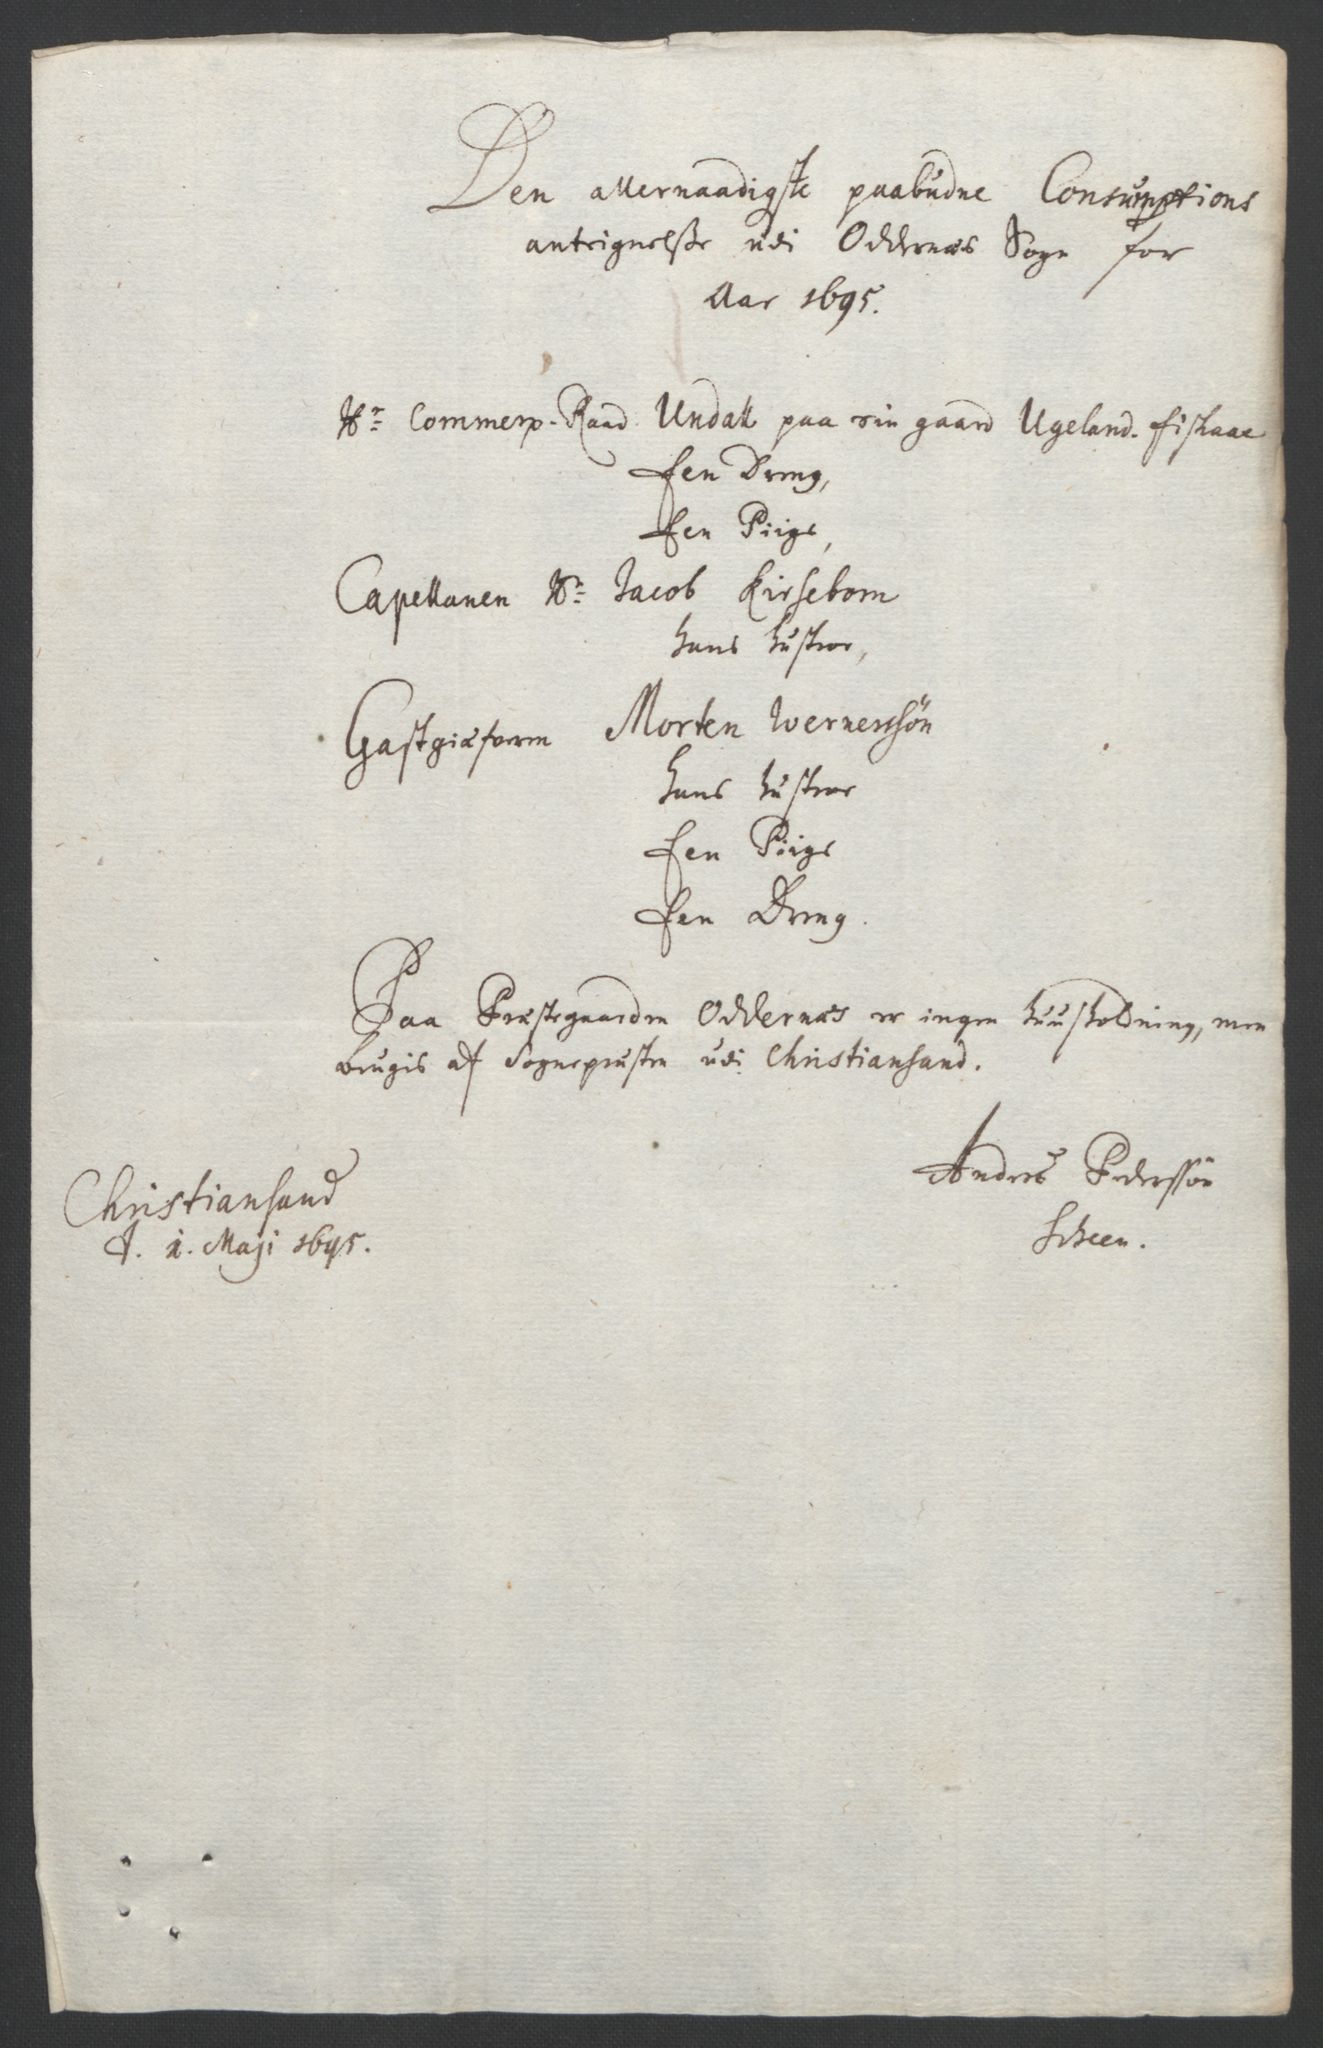 Den allernaadigste paabudne Consumptions
anteignelsse udi Oddernæs Sogn for
Aar 1695.
Hr Commerp. Raad Undall paa sin gaard Ugeland. fiskaae
Een Dreng,
Een Piige,
Capellanen Hr Jacob Kirsebom
hans hustroe,
Gastgiæferen Morten Wernerssön
hans hustroe
Een Piige
Een Dreng.
Paa Præstegaarden Oddernæs er ingen huusholdning, men
brugis af Sognepræsten udi Christiansand.
Anders Pederssön
Scheen.
Christiansand
d. 1. Maji 1695.